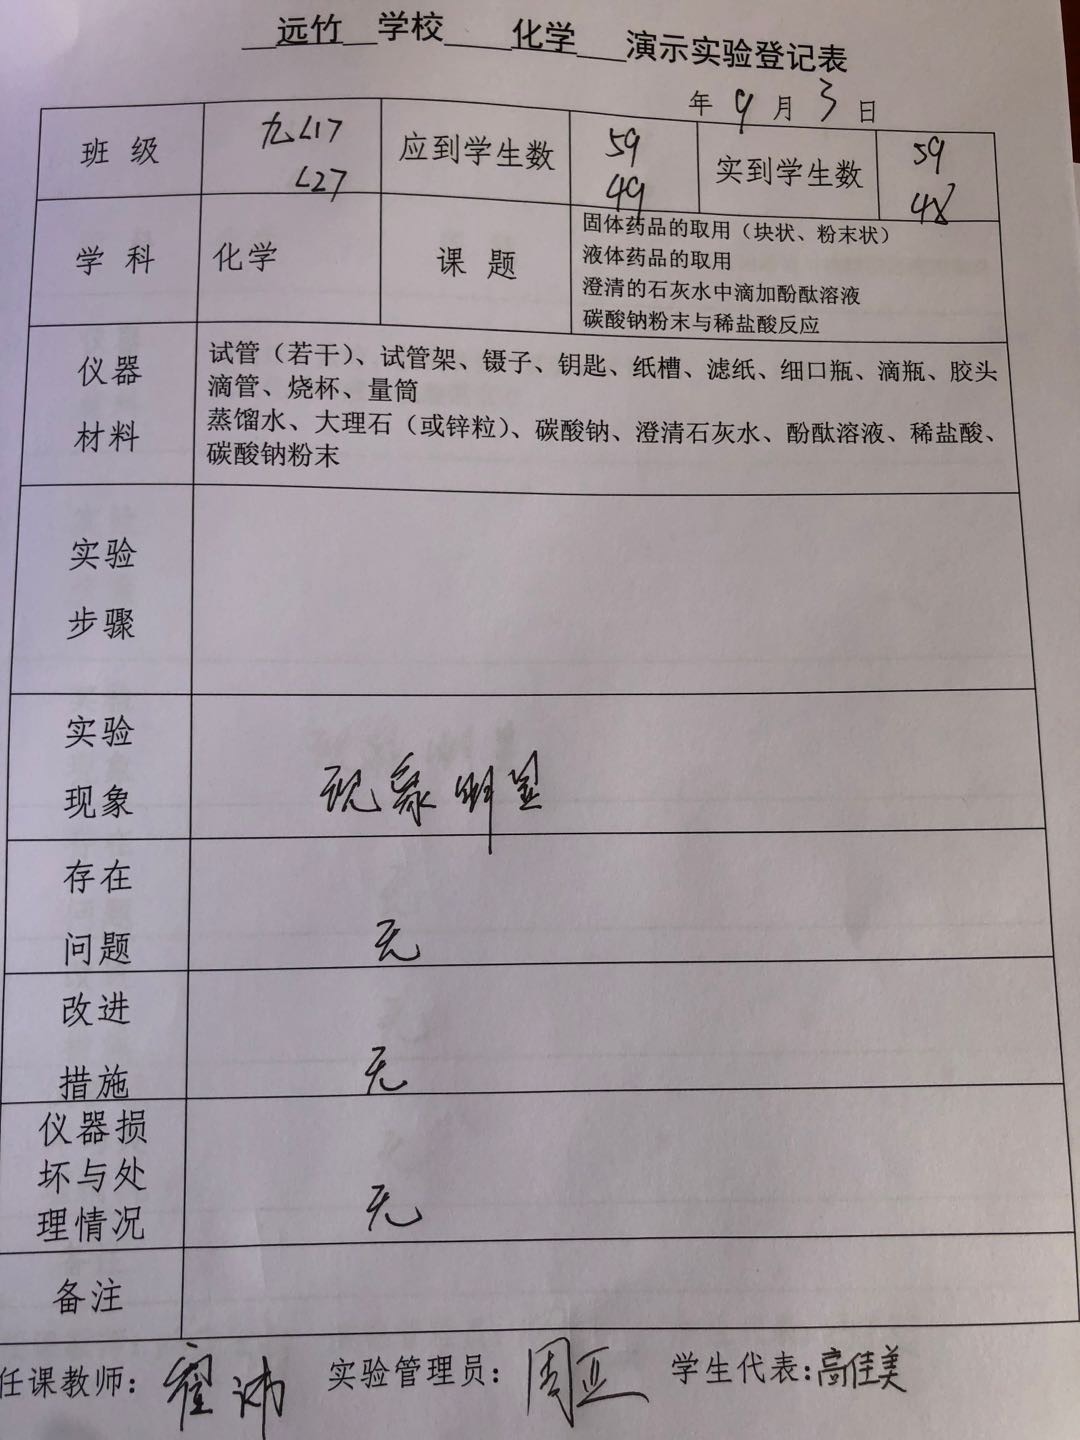 远竹 学校 化学 演示实验登记表
年 9 月 3 日
班级
九<1>
<2>
应到学生数
59
49
实到学生数
59
48
学科
化学
课题
固体药品的取用（块状、粉末状）
液体药品的取用
澄清的石灰水中滴加酚酞溶液
碳酸钠粉末与稀盐酸反应
仪器
材料
试管（若干）、试管架、镊子、钥匙、纸槽、滤纸、细口瓶、滴瓶、胶头
滴管、烧杯、量筒
蒸馏水、大理石（或锌粒）、碳酸钠、澄清石灰水、酚酞溶液、稀盐酸、
碳酸钠粉末
实验
步骤
实验
现象
现象明显
存在
问题
无
改进
措施
无
仪器损
坏与处
理情况
无
备注
任课教师：霍 实验管理员：周亚 学生代表：高佳美